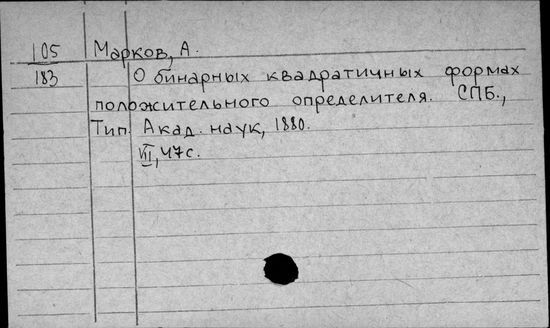 105 Марков, А.
183 О бинарных квадратичных формах
положительного определителя. СПБ.,
Тип. Акад. наук, 1880.
VII, 47 с.